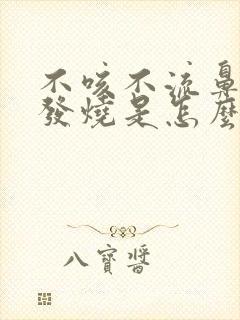 不咳不流鼻
發燒是怎麼
八寶醬